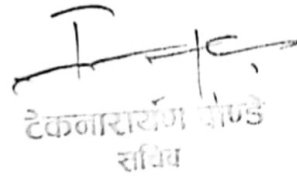 टेकनारायण पाण्डे
सचिव